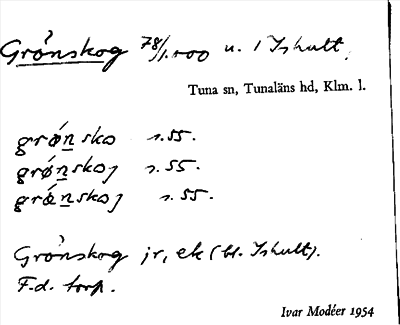 Grönskog 78/1.500 u. 1 Ishult.
Tuna sn, Tunaläns hd, Klm. l.
grǿnsko s. 55.
grǿnskoj s. 55.
grǿnskoj s. 55.
Grönskog jr, ek (bl. Ishult).
F.d. torp.
Ivar Modéer 1954